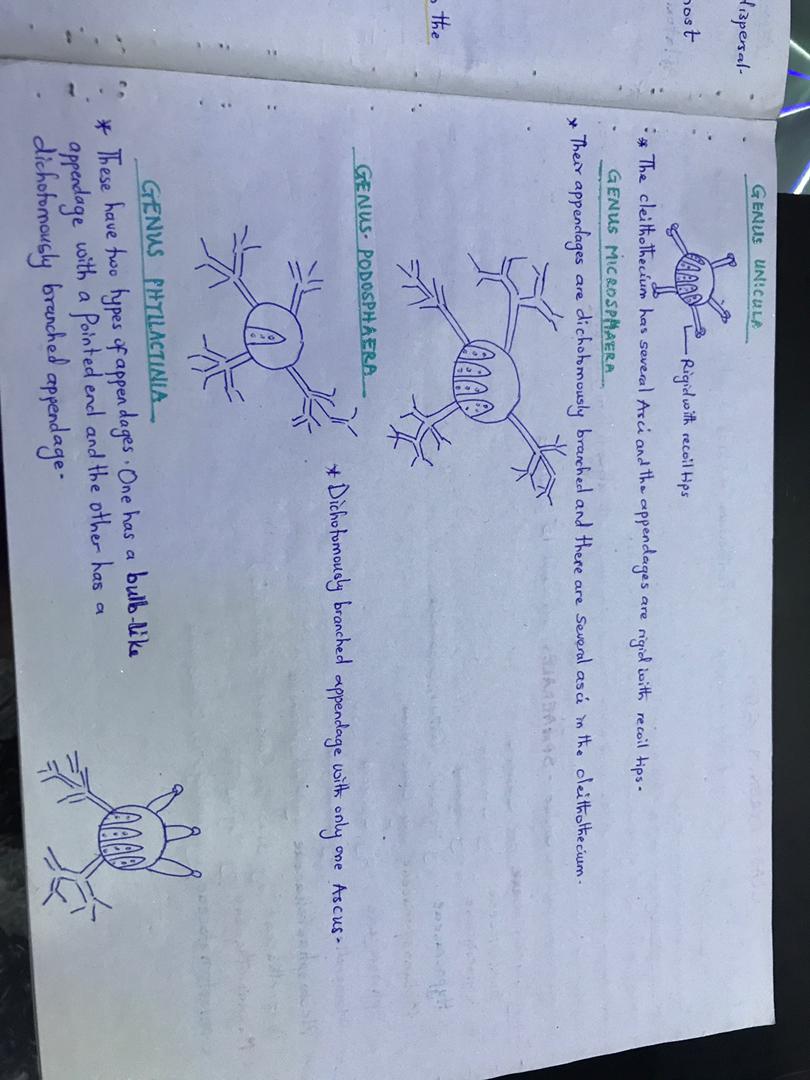 dispersal.
most
the
GENUS UNICULA
Rigid with recoil tips
* The cleithothecium has several Asci and the appendages are rigid with recoil tips.
GENUS MICROSPHAERA
* Their appendages are dichotomously branched and there are several asci in the cleithothecium.
GENUS. PODOSPHAERA
* Dichotomously branched appendage with only one Ascus.
GENUS PHYLLACTINIA
* These have two types of appendages. One has a bulb-like
appendage with a pointed end and the other has a
dichotomously branched appendage.